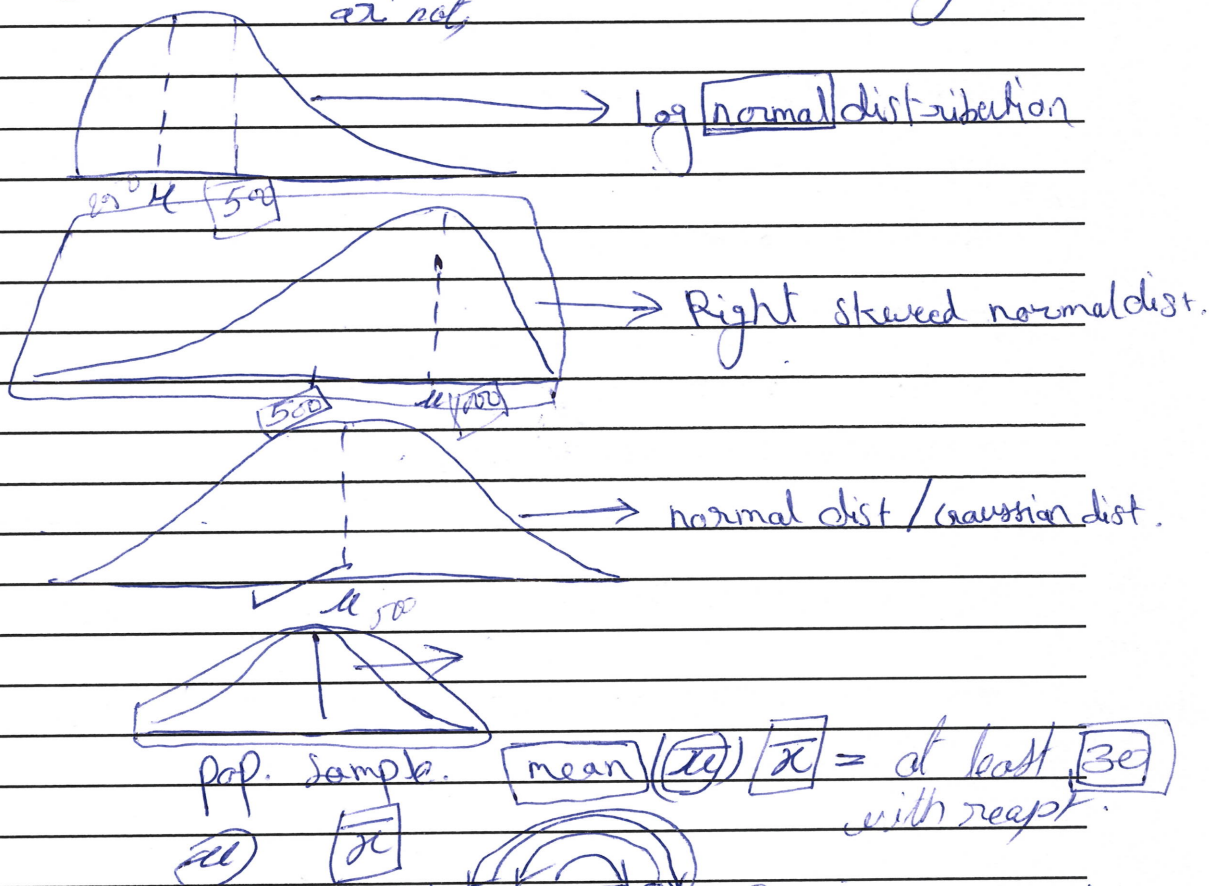 or not,
Log normal distribution
μ 500
Right skewed normal dist.
500 μ 1000
normal dist / Gaussian dist.
μ 500
pop. sample. mean (μ) x̄ = at least 30
with reapt.
μ x̄